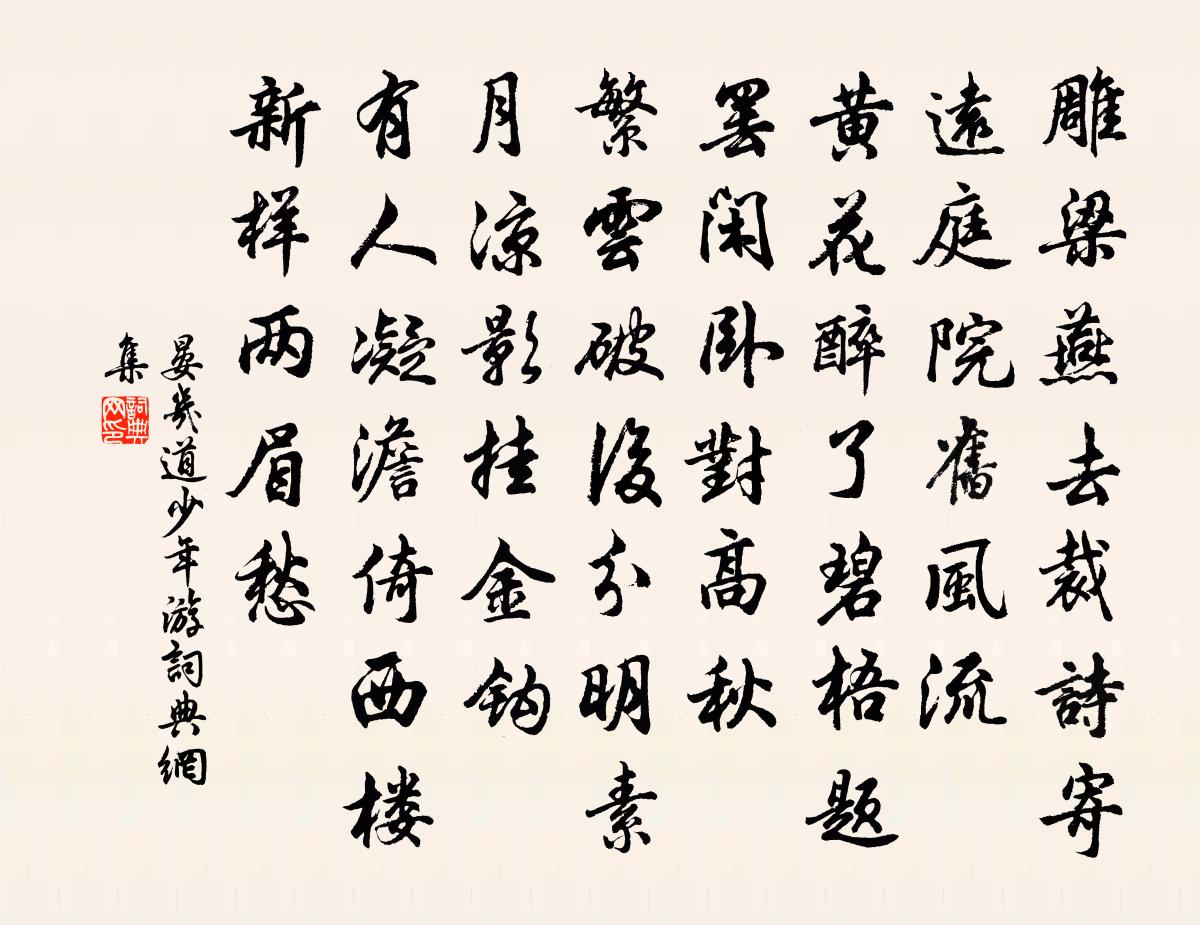 雕梁燕去裁詩寄
遠庭院舊風流
黄花醉了碧梧題
罢闲卧對高秋
繁雲破後分明素
月涼影挂金鈎
有人凝澹倚西楼
新样两眉愁
晏幾道少年游詞典網
集
詞典网印